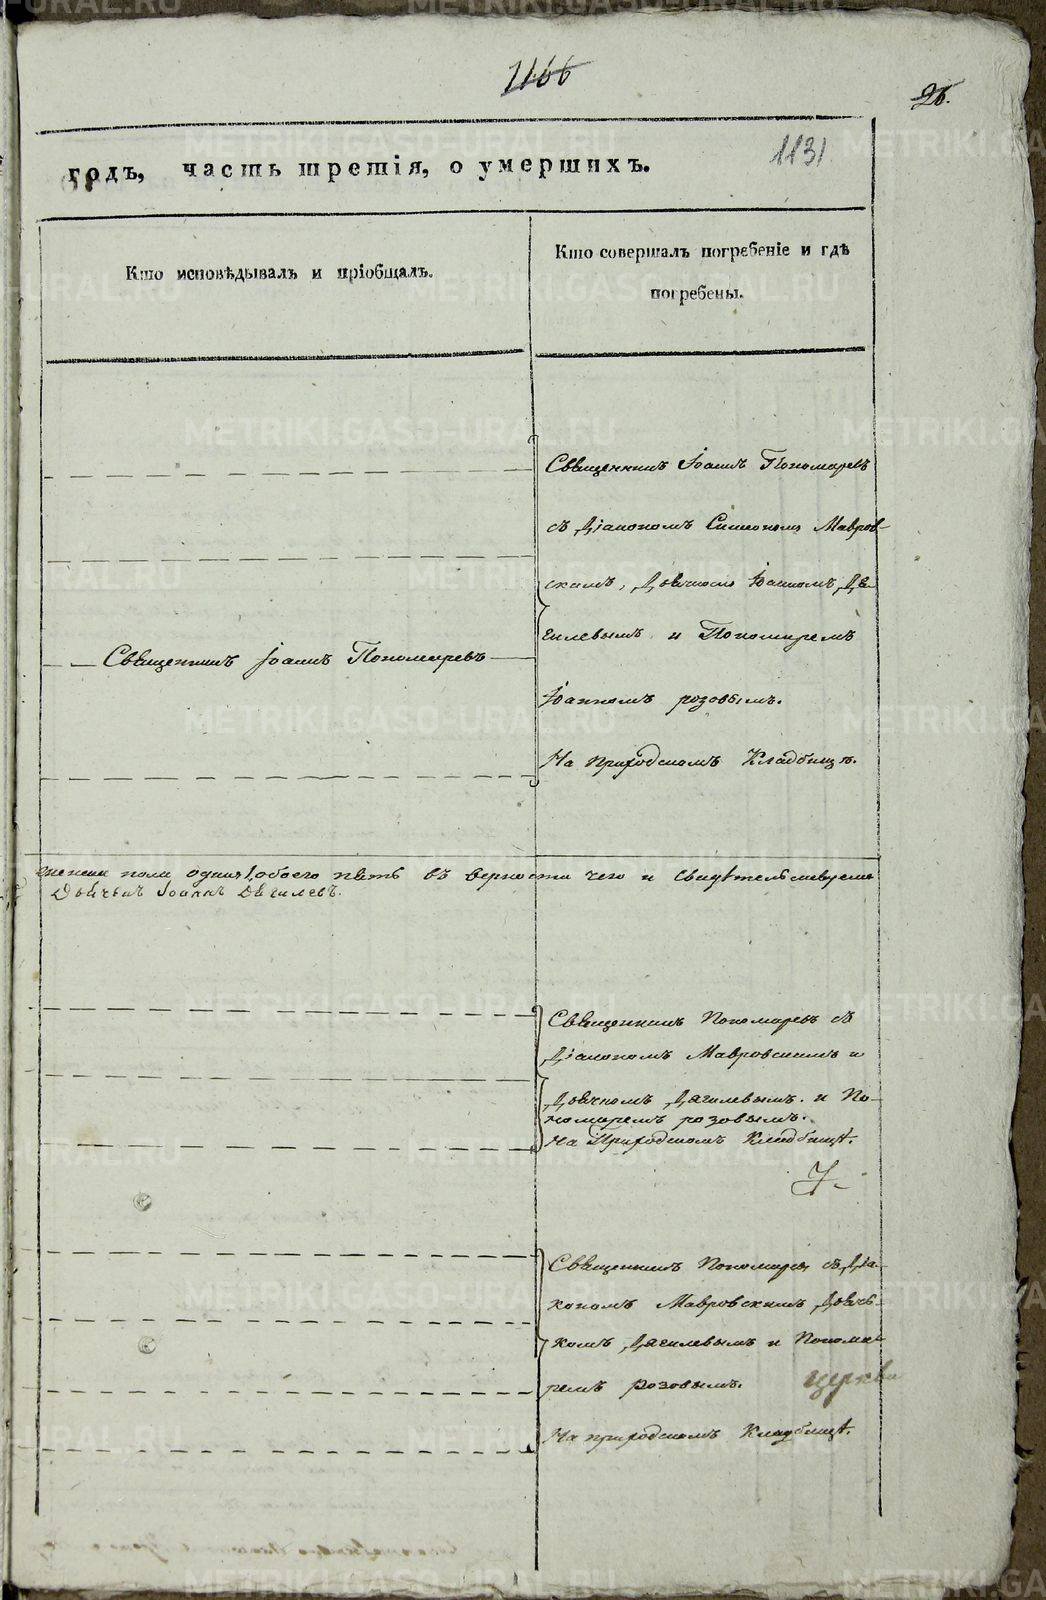 1166
26.
1131
годъ, часть третія, о умершихъ.
Кто исповѣдывалъ и пріобщалъ.
Кто совершалъ погребеніе и гдѣ
погребены.
Священникъ Іоаннъ Пономаревъ
съ Діакономъ Симеономъ Мавров-
скимъ, Дьячкомъ Іоанномъ Дя-
гилевымъ и Пономаремъ
Священникъ Іоаннъ Пономаревъ
Іоанномъ розовымъ.
На приходскомъ Кладбищѣ.
женска пола одна обоего пять въ верности чего и свидѣтельствуемъ
Дьячекъ Іоаннъ Дягилевъ.
Священникъ Пономаревъ съ
Діакономъ Мавровскимъ и
Дьячкомъ Дягилевымъ. и По-
номаремъ розовымъ.
На Приходскомъ Кладбищѣ.
Священникъ Пономаревъ съ Діа-
кономъ Мавровскимъ Дьяч-
комъ Дягилевымъ и Понома-
ремъ розовымъ. церкви
На приходскомъ Кладбищѣ.
METRIKI.GASO-URAL.RU